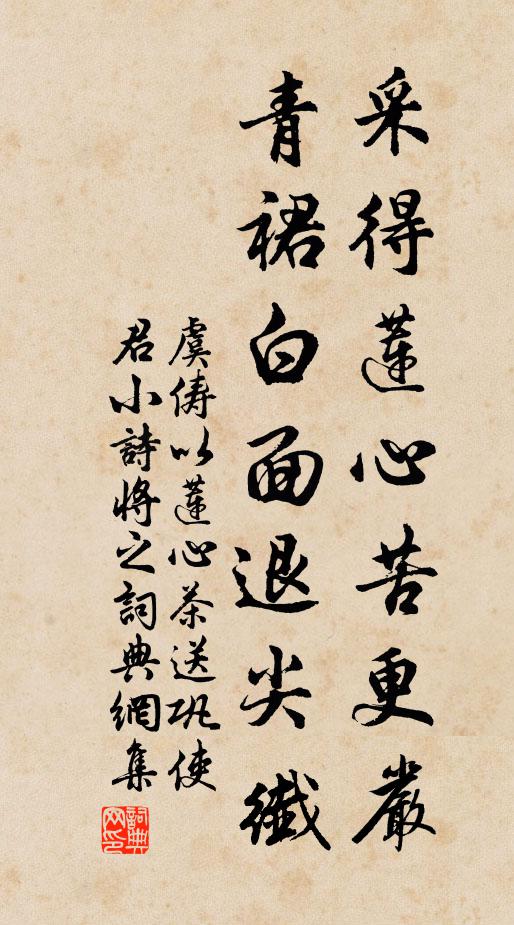 采得蓮心苦更嚴
青裙白面退尖纖
虞儔以蓮心茶送巩使
君小詩將之詞典網集
詞典
网印